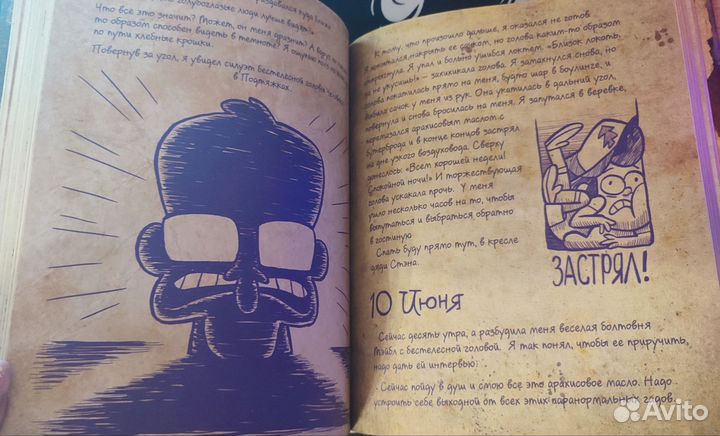 раздавался куда ближе.
голубоглазые люди лучше видят?»
Что все это значит? Может, он меня дразнит? А вдруг он
то образом способен видеть в темноте? Я ощупью
по пути хлебные крошки.
Повернув за угол, я увидел силуэт бестелесной головы Человека
в Подтяжках.
К тому, что произошло дальше, я оказался не готов.
Я попытался накрыть ее сачком, но голова каким-то образом
увернула. Я упал и больно ушибся локтем. «Близок локоть,
да не укусишь!» – захихикала голова. Я замахнулся снова, но
голова покатилась прямо на меня, будто шар в боулинге, и
выбила сачок у меня из рук. Она укатилась в дальний угол,
повернула и снова бросилась на меня. Я запутался в веревке,
перемазался арахисовым маслом с
бутерброда и в конце концов застрял
на дне узкого воздуховода. Сверху
донеслось: «Всем хорошей недели!
Спокойной ночи!» И торжествующая
голова ускакала прочь. У меня
ушло несколько часов на то, чтобы
выпутаться и выбраться обратно
в гостиную
Спать буду прямо тут, в кресле
дяди Стэна.
ЗАСТРЯЛ!
10 Июня
Сейчас десять утра, а разбудила меня веселая болтовня
Мэйбл с бестелесной головой. Я так понял, чтобы ее приручить,
надо дать ей интервью.
Сейчас пойду в душ и смою все это арахисовое масло. Надо
устроить себе выходной от всех этих паранормальных годов.
Avito